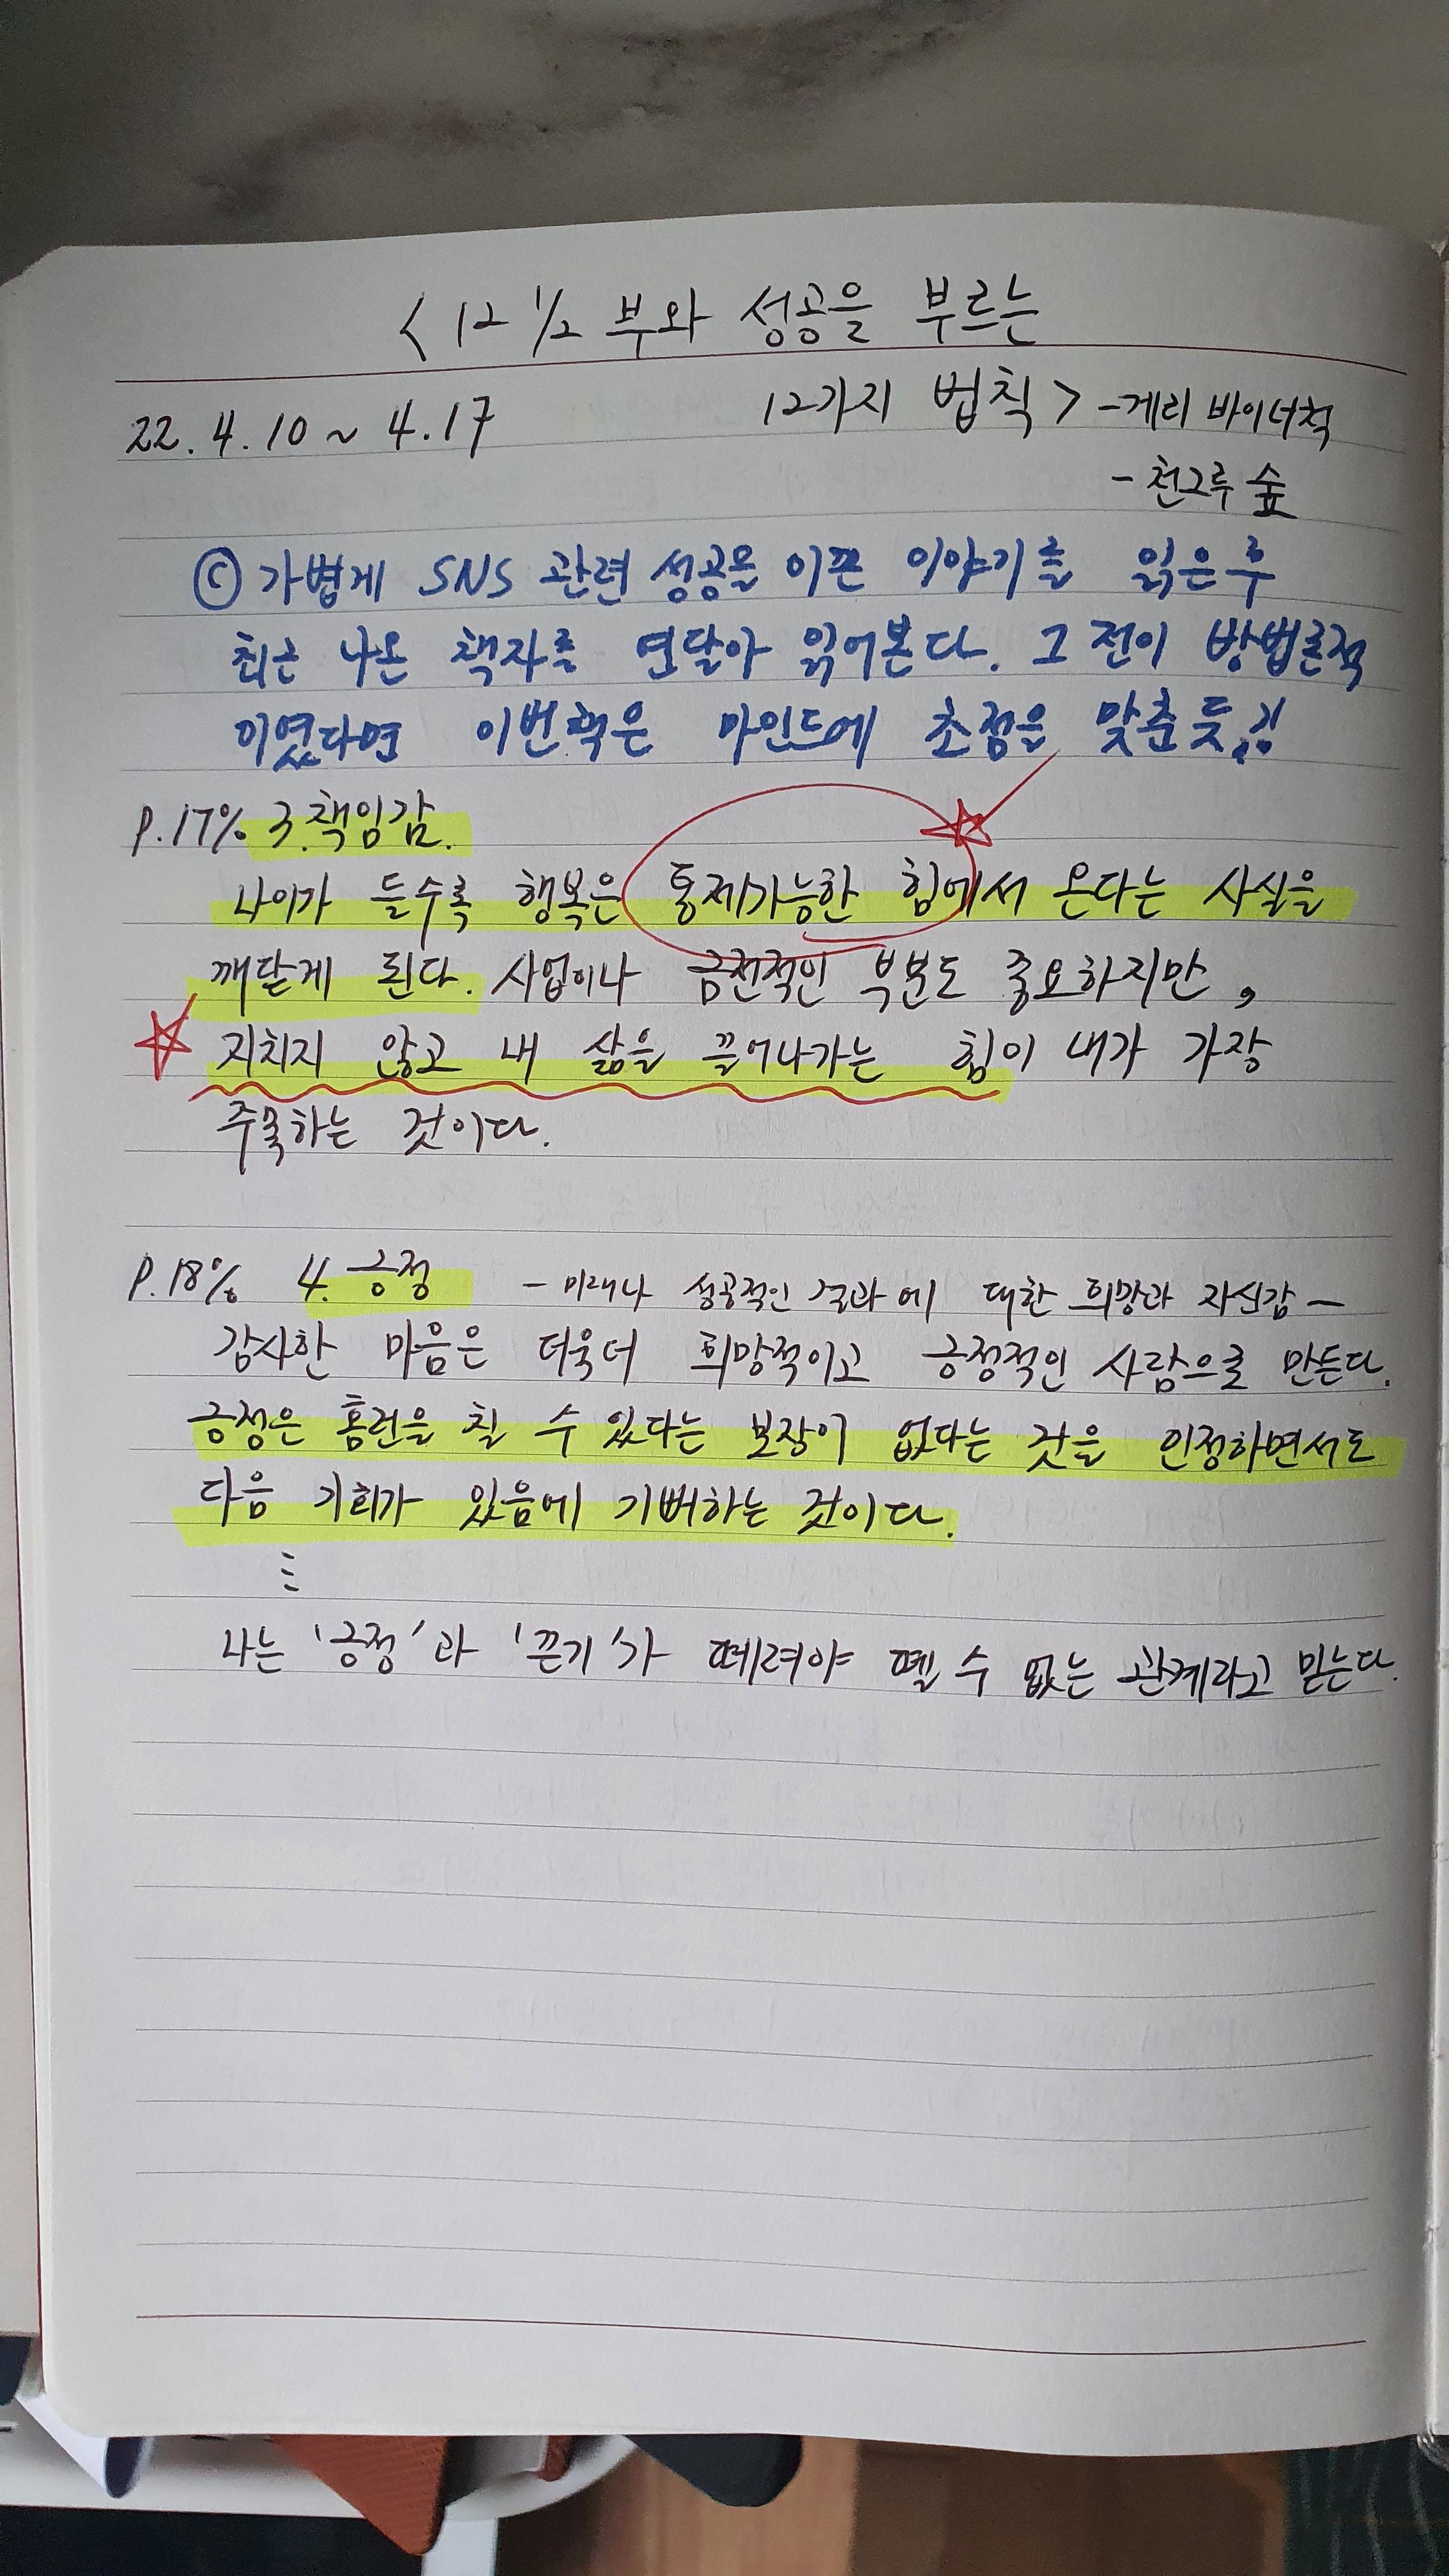 < 12 1/2 부와 성공을 부르는
22. 4. 10 ~ 4. 17 12가지 법칙 > - 게리 바이너척
- 천그루 숲
ⓒ 가볍게 SNS 관련 성공을 이끈 이야기를 읽은 후
최근 나온 책자를 연달아 읽어본다. 그 전이 방법론적
이였다면 이번책은 마인드에 초점을 맞춘 듯.!!
P.17% 3. 책임감.
나이가 들수록 행복은 통제가능한 힘에서 온다는 사실을
깨닫게 된다. 사업이나 금전적인 부분도 중요하지만,
지치지 않고 내 삶을 끌어나가는 힘이 내가 가장
주목하는 것이다.
P.18% 4. 긍정 - 미래나 성공적인 결과에 대한 희망과 자신감 -
감사한 마음은 더욱더 희망적이고 긍정적인 사람으로 만든다.
긍정은 홈런을 칠 수 있다는 보장이 없다는 것을 인정하면서도
다음 기회가 있음에 기뻐하는 것이다.
⋮
나는 '긍정'과 '끈기'가 떼려야 뗄 수 없는 관계라고 믿는다.